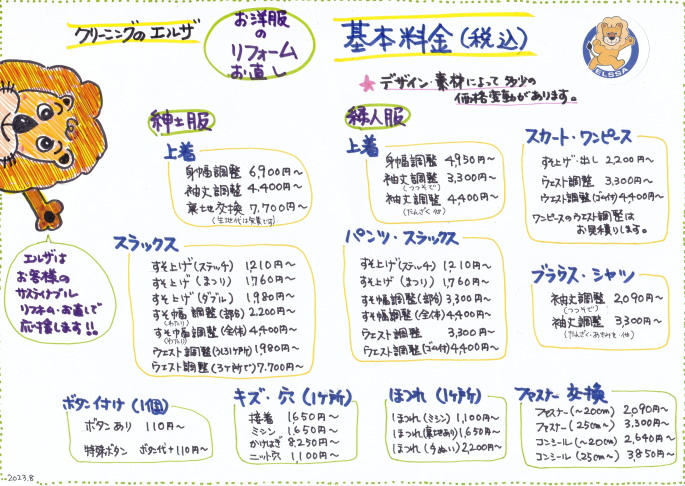 クリーニングのエルザ
お洋服
の
リフォーム
お直し
基本料金(税込)
ELSSA
★デザイン・素材によって多少の
価格変動があります。
紳士服
上着
身幅調整 6,900円～
袖丈調整 4,400円～
裏地交換 7,700円～
(生地代は別途です)
スラックス
すそ上げ(ステッチ) 1,210円～
すそ上げ(まつり) 1,760円～
すそ上げ(ダブル) 1,980円～
すそ幅調整(部分) 2,200円～
(わたり)
すそ巾調整(全体) 4,400円～
(わたり)
ウエスト調整(うしろ1ヶ所) 1,980円～
ウエスト調整(3ヶ所で) 7,700円～
婦人服
上着
身幅調整 4,950円～
袖丈調整 3,300円～
(つつそで)
袖丈調整 4,400円～
(たんざく 他)
パンツ・スラックス
すそ上げ(ステッチ) 1,210円～
すそ上げ(まつり) 1,760円～
すそ幅調整(部分) 3,300円～
すそ幅調整(全体) 4,400円～
ウエスト調整 3,300円～
ウエスト調整(ゴム付) 4,400円～
スカート・ワンピース
すそ上げ・出し 2,200円～
ウエスト調整 3,300円～
ウエスト調整(ゴム付) 4,400円～
ワンピースのウエスト調整は
お見積りします。
ブラウス・シャツ
袖丈調整 2,090円～
(つつそで)
袖丈調整 3,300円～
(たんざく・あきみせ・他)
エルザは
お客様の
サスティナブル
リフォーム・お直しで
応援します!!
ボタン付け(1個)
ボタンあり 110円～
特殊ボタン ボタン代+110円～
キズ・穴(1ヶ所)
接着 1,650円～
ミシン 1,650円～
かけはぎ 8,250円～
ニット穴 1,100円～
ほつれ(1ヶ所)
ほつれ(ミシン) 1,100円～
ほつれ(裏地あり) 1,650円～
ほつれ(手ぬい) 2,200円～
ファスナー交換
ファスナー(～20cm) 2,090円～
ファスナー(25cm～) 3,300円～
コンシール(～20cm) 2,640円～
コンシール(25cm～) 3,850円～
2023.8